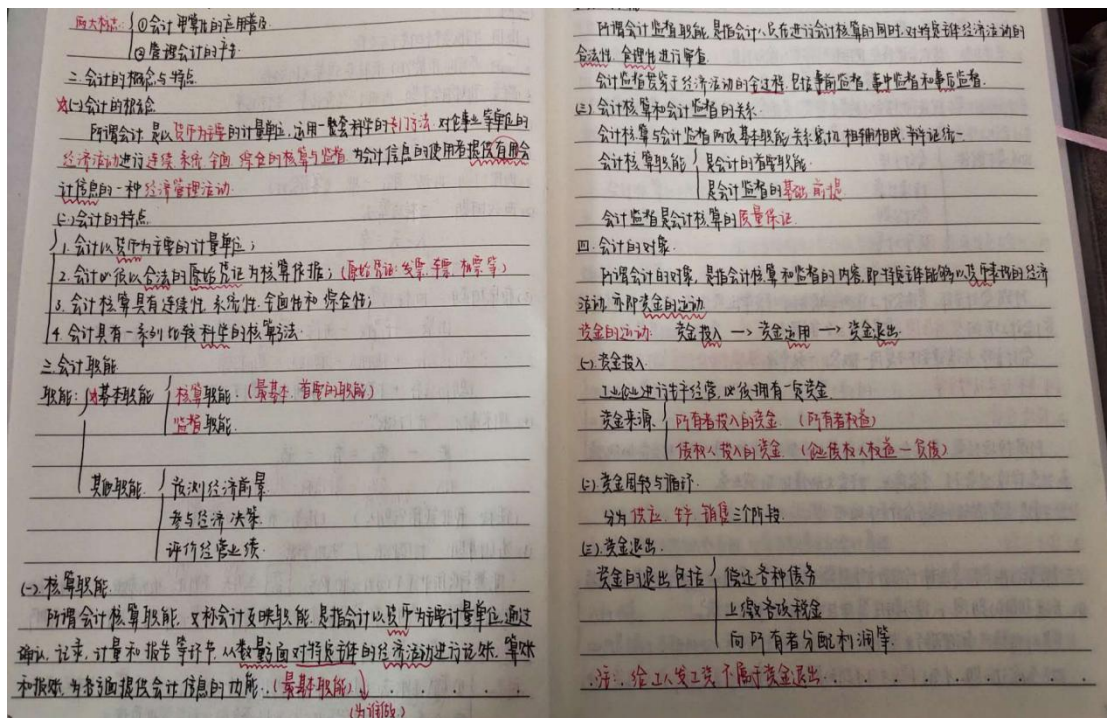 两大标志：①会计电算化的应用普及
②管理会计的产生
二.会计的概念与特点
(一)会计的概念
所谓会计,是以货币为主要的计量单位,运用一整套科学的专门方法,对企事业等单位的
经济活动进行连续、系统、全面、综合的核算与监督,为会计信息的使用者提供有用会
计信息的一种经济管理活动.
(二)会计的特点
1.会计以货币为主要的计量单位；
2.会计必须以合法的原始凭证为核算依据；(原始凭证:发票、车票、机票等)
3.会计核算具有连续性、系统性、全面性和综合性；
4.会计具有一系列比较科学的核算方法.
三.会计职能
职能：基本职能 核算职能:(最基本、首要的职能)
监督职能.
其他职能 预测经济前景
参与经济决策
评价经营业绩.
(一).核算职能
所谓会计核算职能,又称会计反映职能,是指会计以货币为主要计量单位,通过
确认、记录、计量和报告等环节,从数量方面对特定主体的经济活动进行记账、算账
和报账,为各方面提供会计信息的功能.(最基本职能)
(为谁做)
所谓会计监督职能,是指会计人员在进行会计核算的同时,对特定主体经济活动的
合法性、合理性进行审查.
会计监督贯穿于经济活动的全过程,包括事前监督、事中监督和事后监督.
(三)会计核算和会计监督的关系.
会计核算与会计监督两项基本职能关系密切、相辅相成、辩证统一
会计核算职能 是会计的首要职能.
是会计监督的基础、前提
会计监督是会计核算的质量保证.
四.会计的对象.
所谓会计的对象,是指会计核算和监督的内容,即特定主体能够以货币表现的经济
活动,亦即资金的运动
资金的运动: 资金投入 → 资金运用 → 资金退出.
(一).资金投入.
工业企业进行生产经营,必须拥有一定资金
资金来源 所有者投入的资金 (所有者权益)
债权人投入的资金 (企业债权人权益—负债)
(二).资金周转与循环.
分为供应、生产、销售三个阶段.
(三).资金退出.
资金的退出包括 偿还各种债务
上缴各项税金
向所有者分配利润等.
注:给工人发工资不属于资金退出.